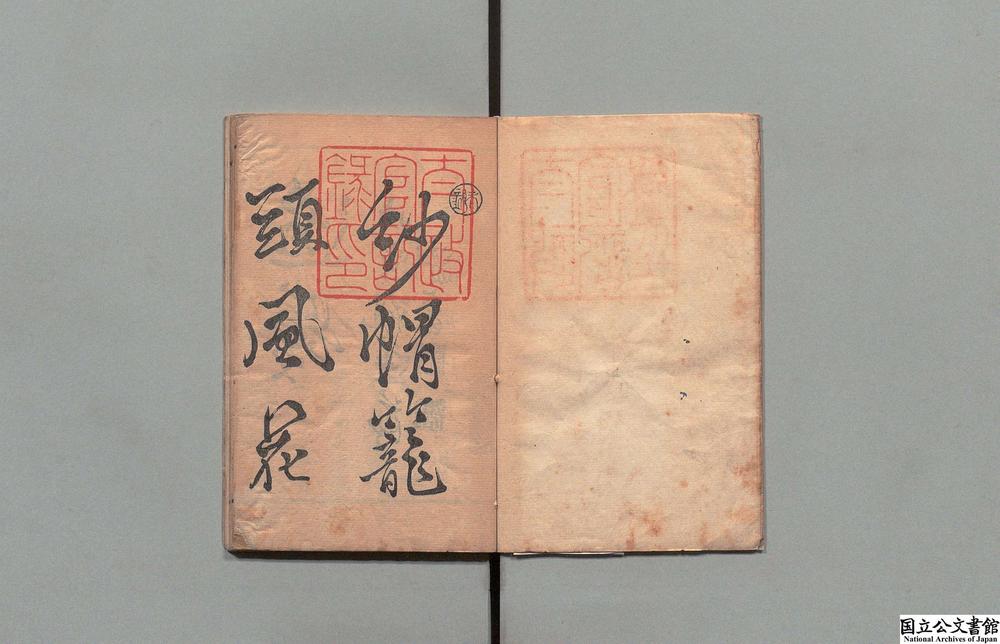 紗帽籠
頭風花
太政
官記
録印
国立公文書館
National Archives of Japan